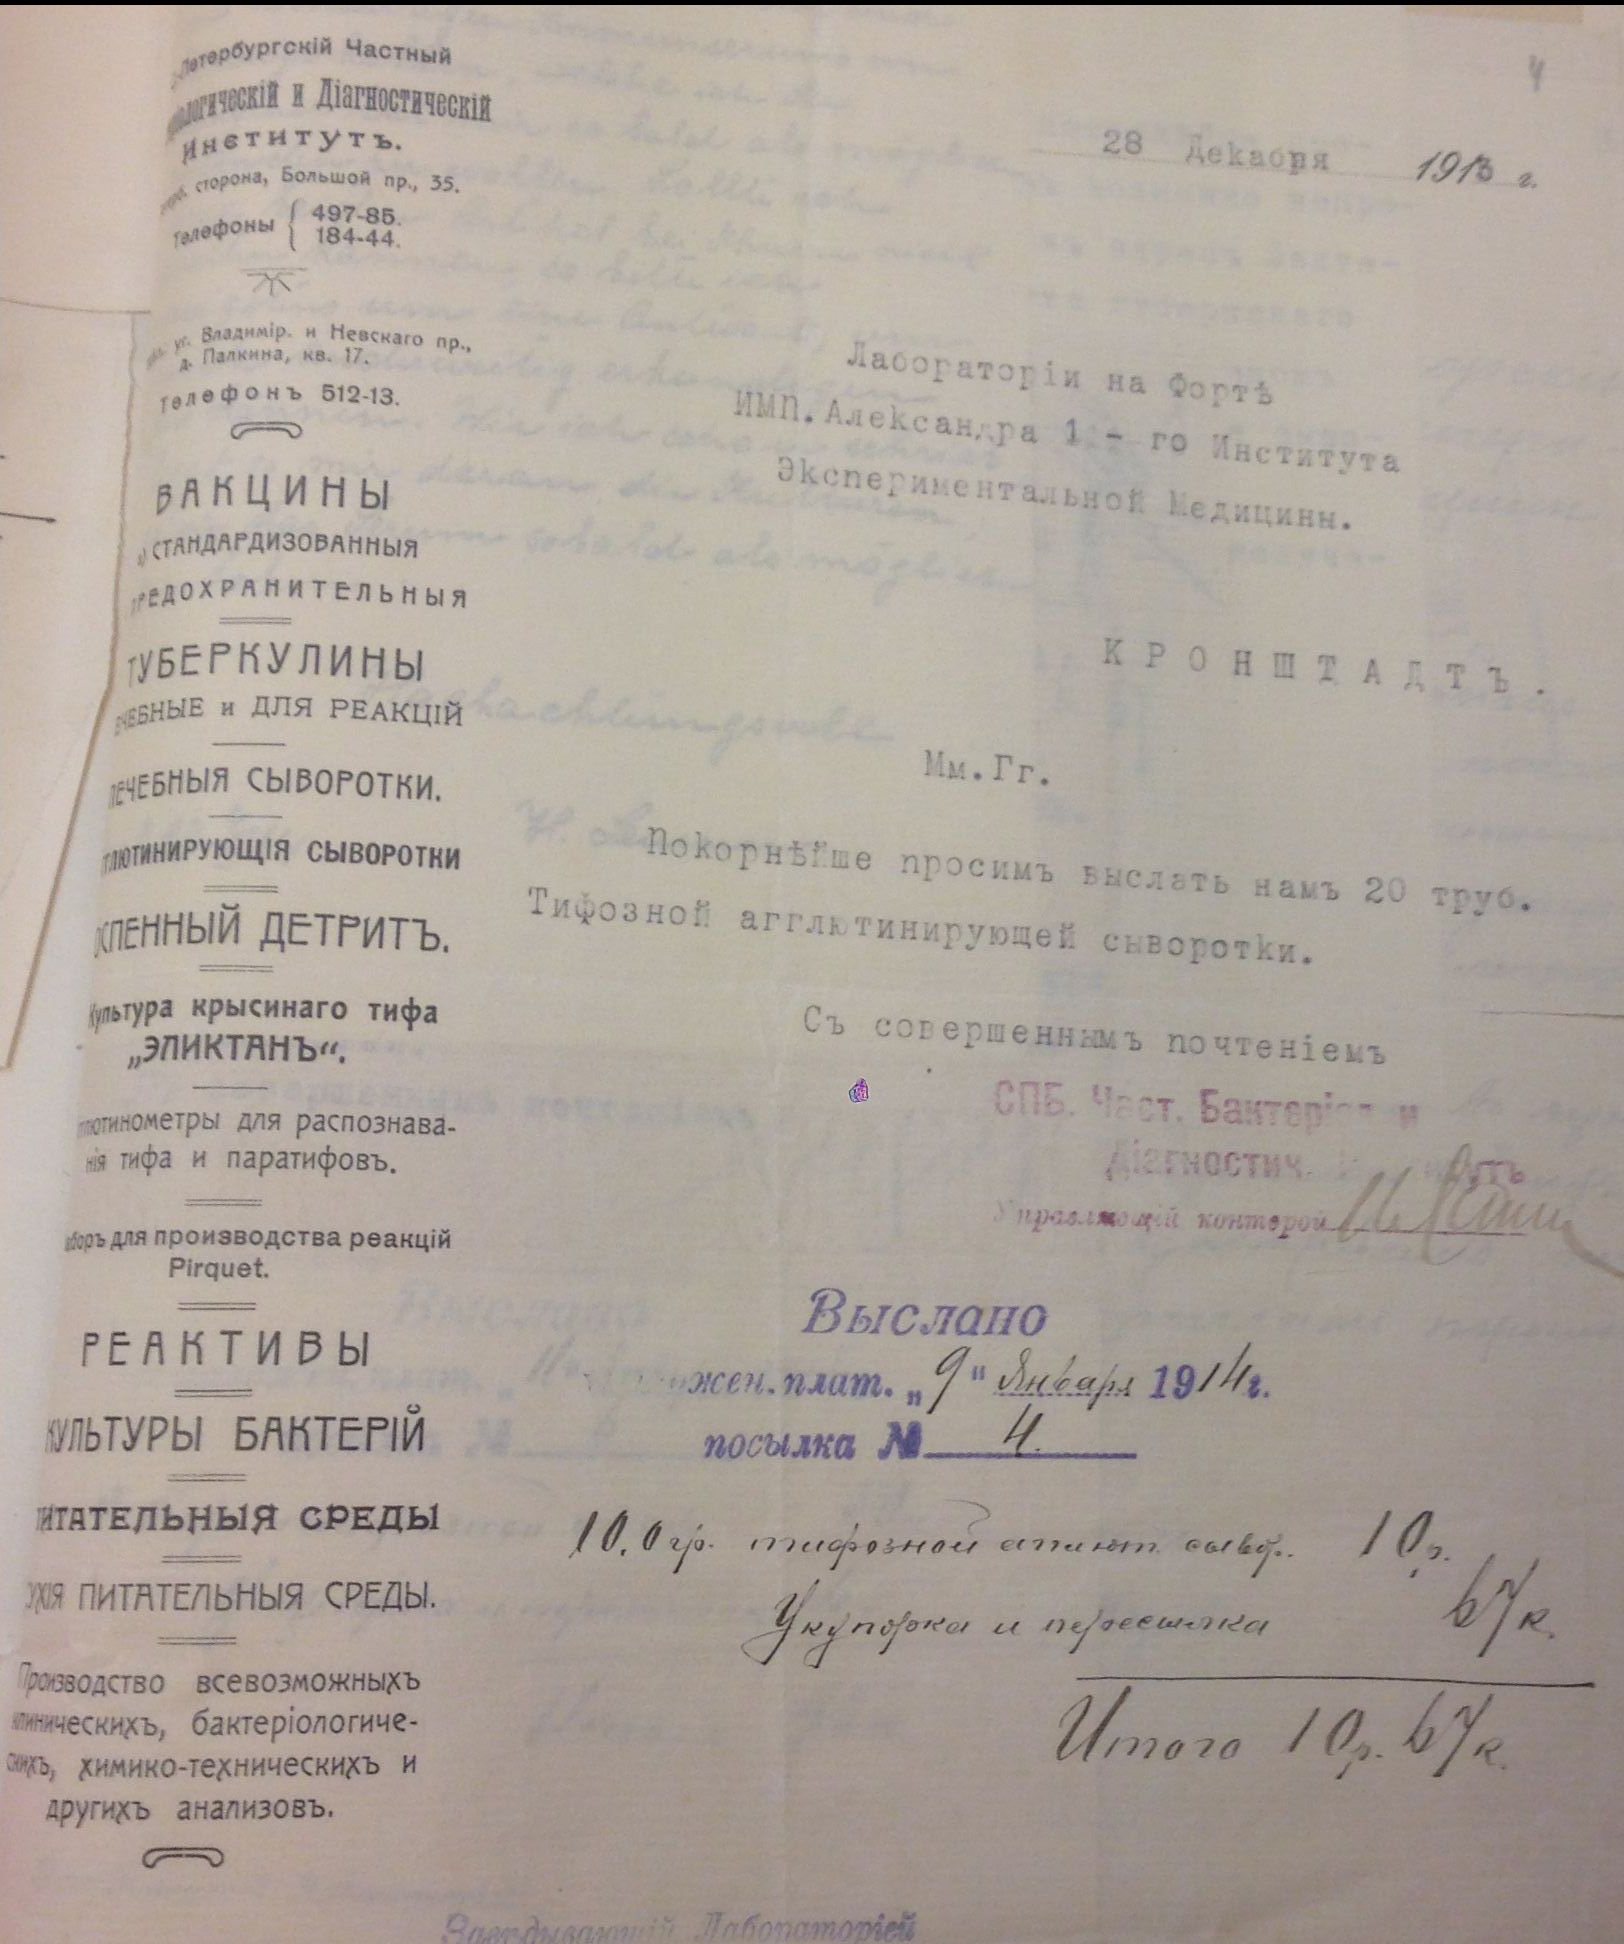 Петербургскій Частный
и Діагностическій
Институтъ.
сторона, Большой пр., 35.
Телефоны { 497-85.
184-44.
уг. Владимір. и Невскаго пр.,
д. Палкина, кв. 17.
Телефонъ 512-13.
ВАКЦИНЫ
СТАНДАРДИЗОВАННЫЯ
ПРЕДОХРАНИТЕЛЬНЫЯ
ТУБЕРКУЛИНЫ
ЛЕЧЕБНЫЕ и ДЛЯ РЕАКЦІЙ
ЛЕЧЕБНЫЯ СЫВОРОТКИ.
АГГЛЮТИНИРУЮЩІЯ СЫВОРОТКИ
ОСПЕННЫЙ ДЕТРИТЪ.
Культура крысинаго тифа
„ЭЛИКТАНЪ“.
Агглютинометры для распознава-
нія тифа и паратифовъ.
Наборъ для производства реакцій
Pirquet.
РЕАКТИВЫ
КУЛЬТУРЫ БАКТЕРІЙ
ПИТАТЕЛЬНЫЯ СРЕДЫ
СУХІЯ ПИТАТЕЛЬНЫЯ СРЕДЫ.
Производство всевозможныхъ
клиническихъ, бактеріологиче-
скихъ, химико-техническихъ и
другихъ анализовъ.
4
28 Декабря 1913 г.
Лабораторіи на Фортѣ
ИМП. Александра 1 - го Института
Экспериментальной Медицины.
КРОНШТАДТЪ.
Мм.Гг.
Покорнѣйше просимъ выслать намъ 20 труб.
Тифозной агглютинирующей сыворотки.
Съ совершеннымъ почтеніемъ
СПБ. Част. Бактеріол. и
Діагностич. Институтъ
Управляющій конторой
Выслано
жен. плат. „9" Января 1914 г.
посылка № 4.
10,0 гр. тифозной аглют. сывор. 10 р.
Укупорка и пересылка 67 к.
Итого 10 р. 67 к.
Завѣдывающій Лабораторіей